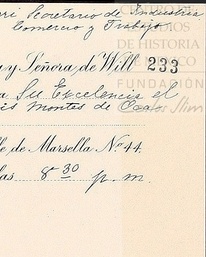 Secretario de Industria
Comercio y Trabajo
DE HISTORIA
y Señora de Will 233
FUNDACIÓN
a Su Excelencia el
Montes de Oca
Slim
lle de Marsella No. 44.
las 8 30 p.m.